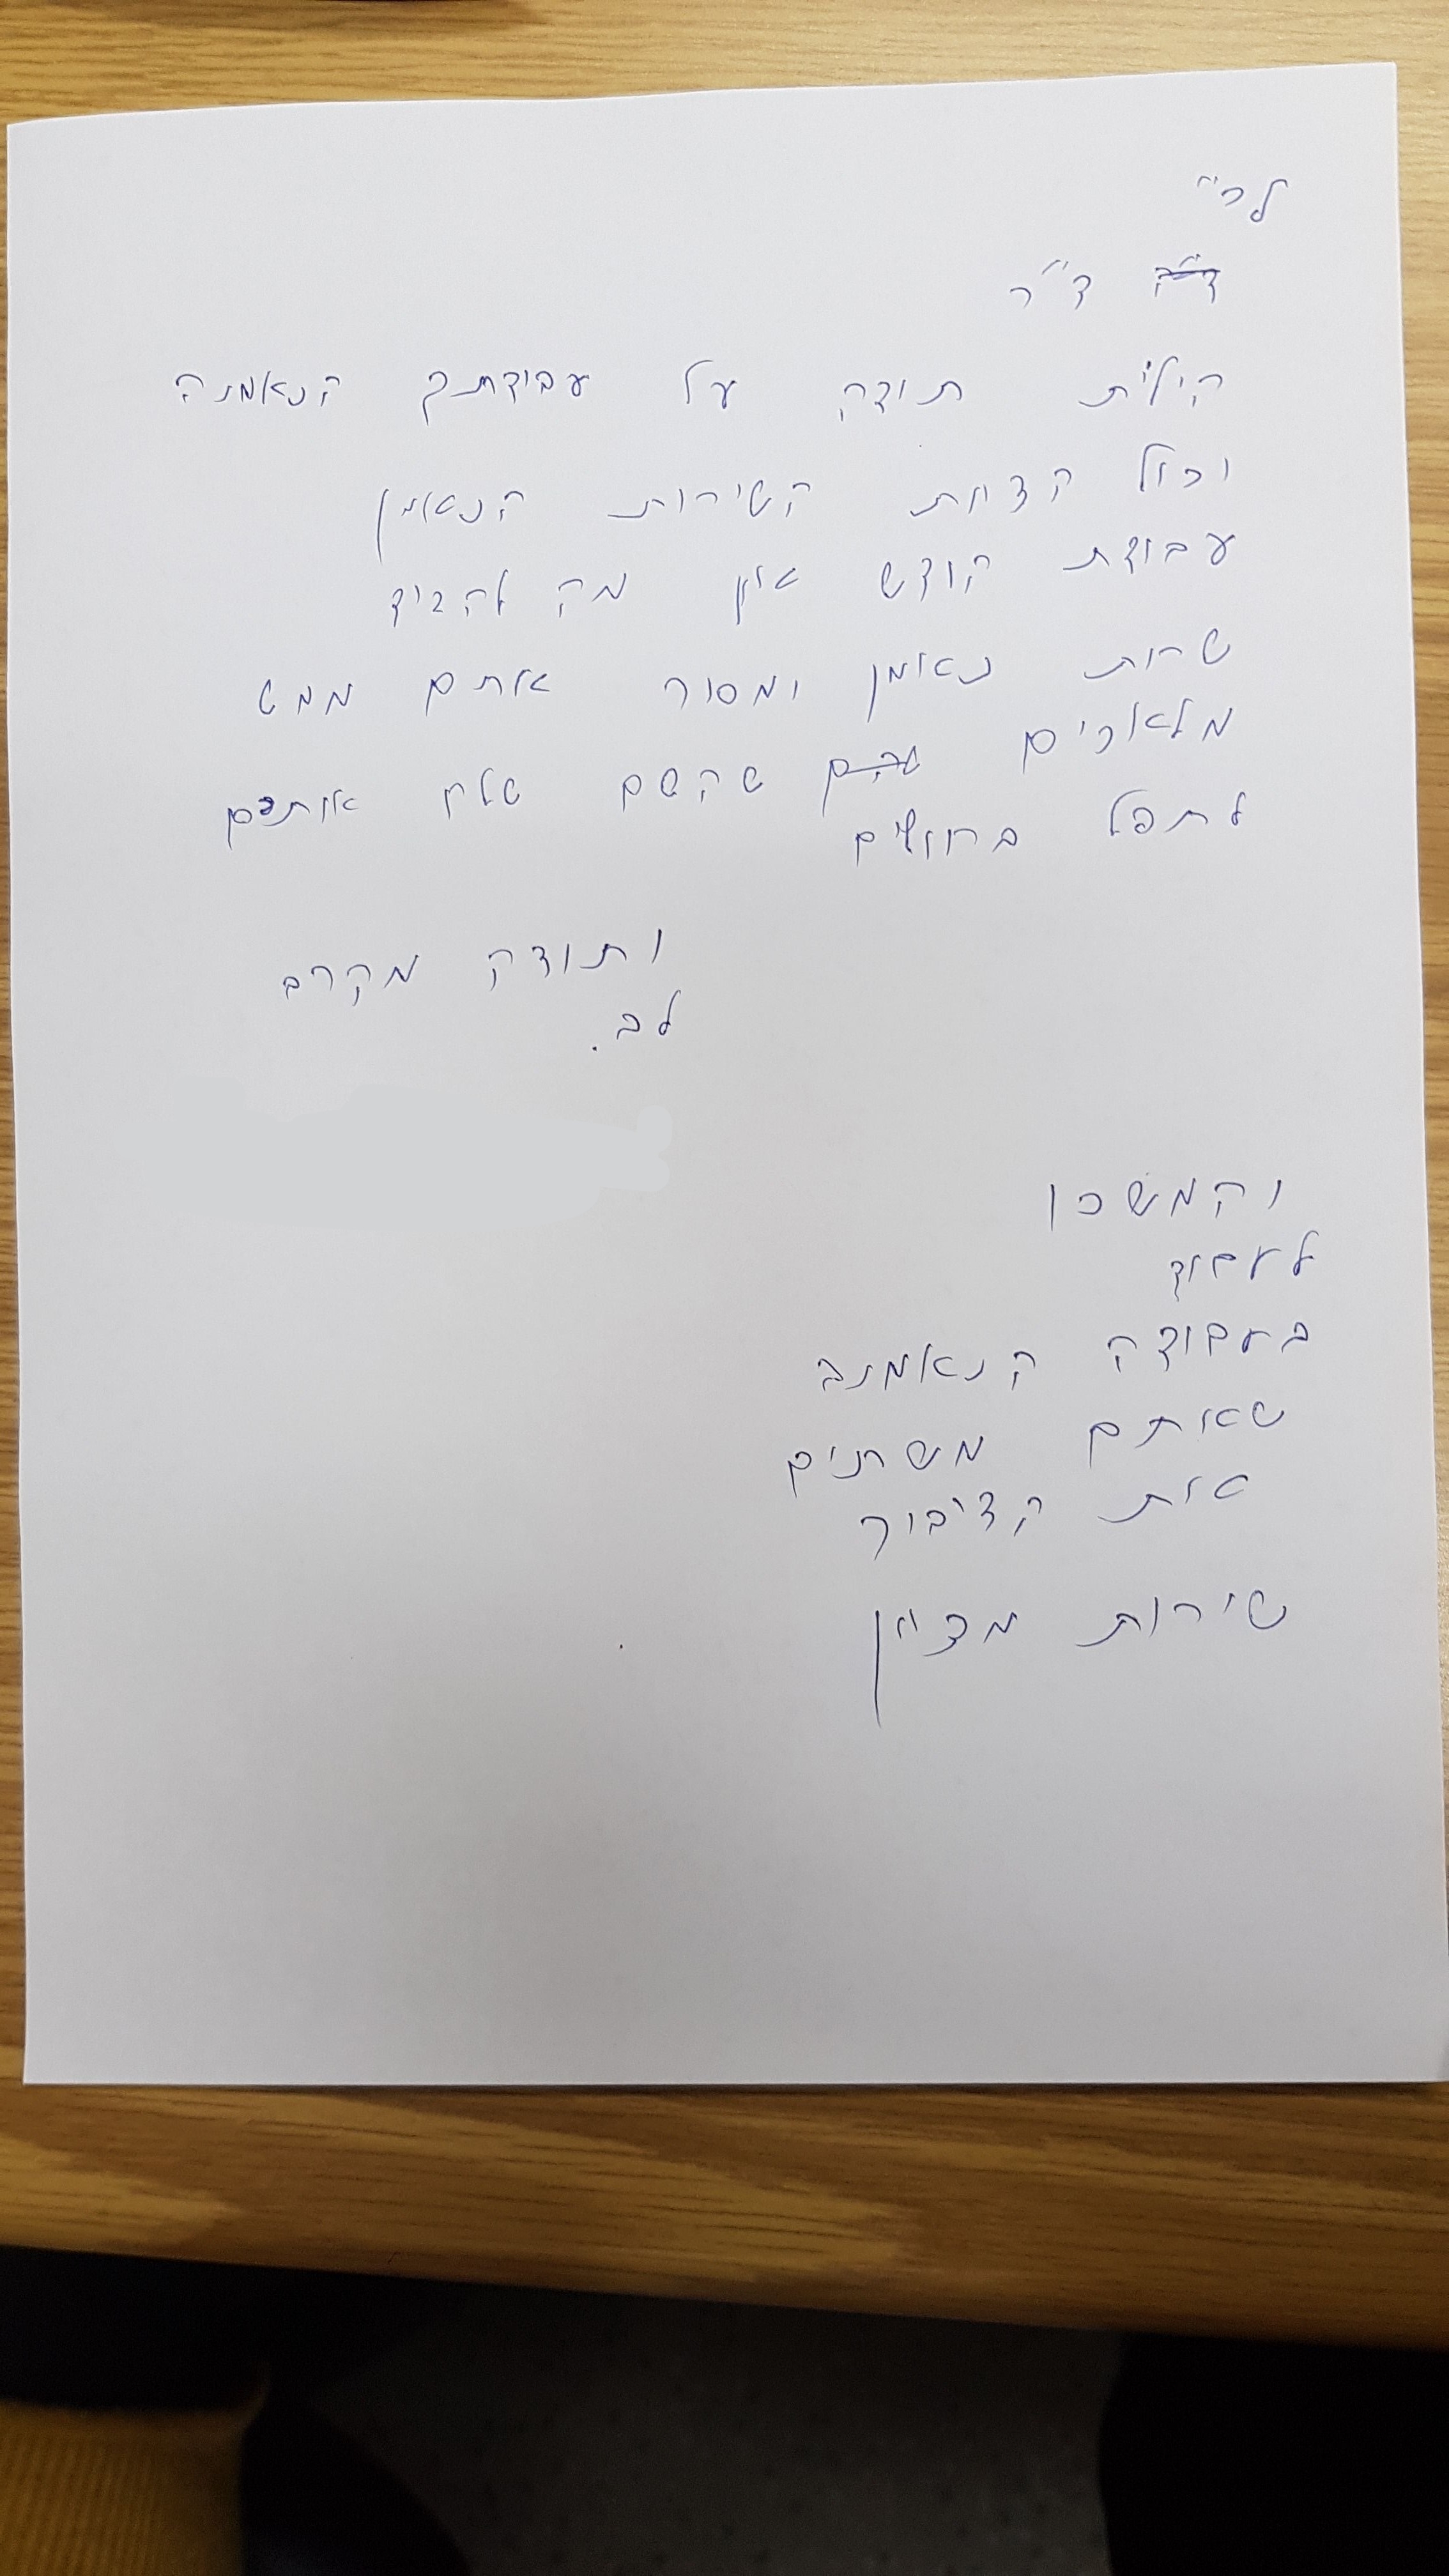 לכ"
ד"ר
תודה על עבודתך הנאמנה
וכול הצוות השירות הנאמן
עבודת קודש אין מה להגיד
שרות נאמן ומסור אתם ממש
מלאכים שהשם שלח אותכם
לתפל בחולים
ותודה מקרב
לב.
והמשכו
לעבוד
בעבודה הנאמנה
שאתם משרתים
את הציבור
שירות מצוין